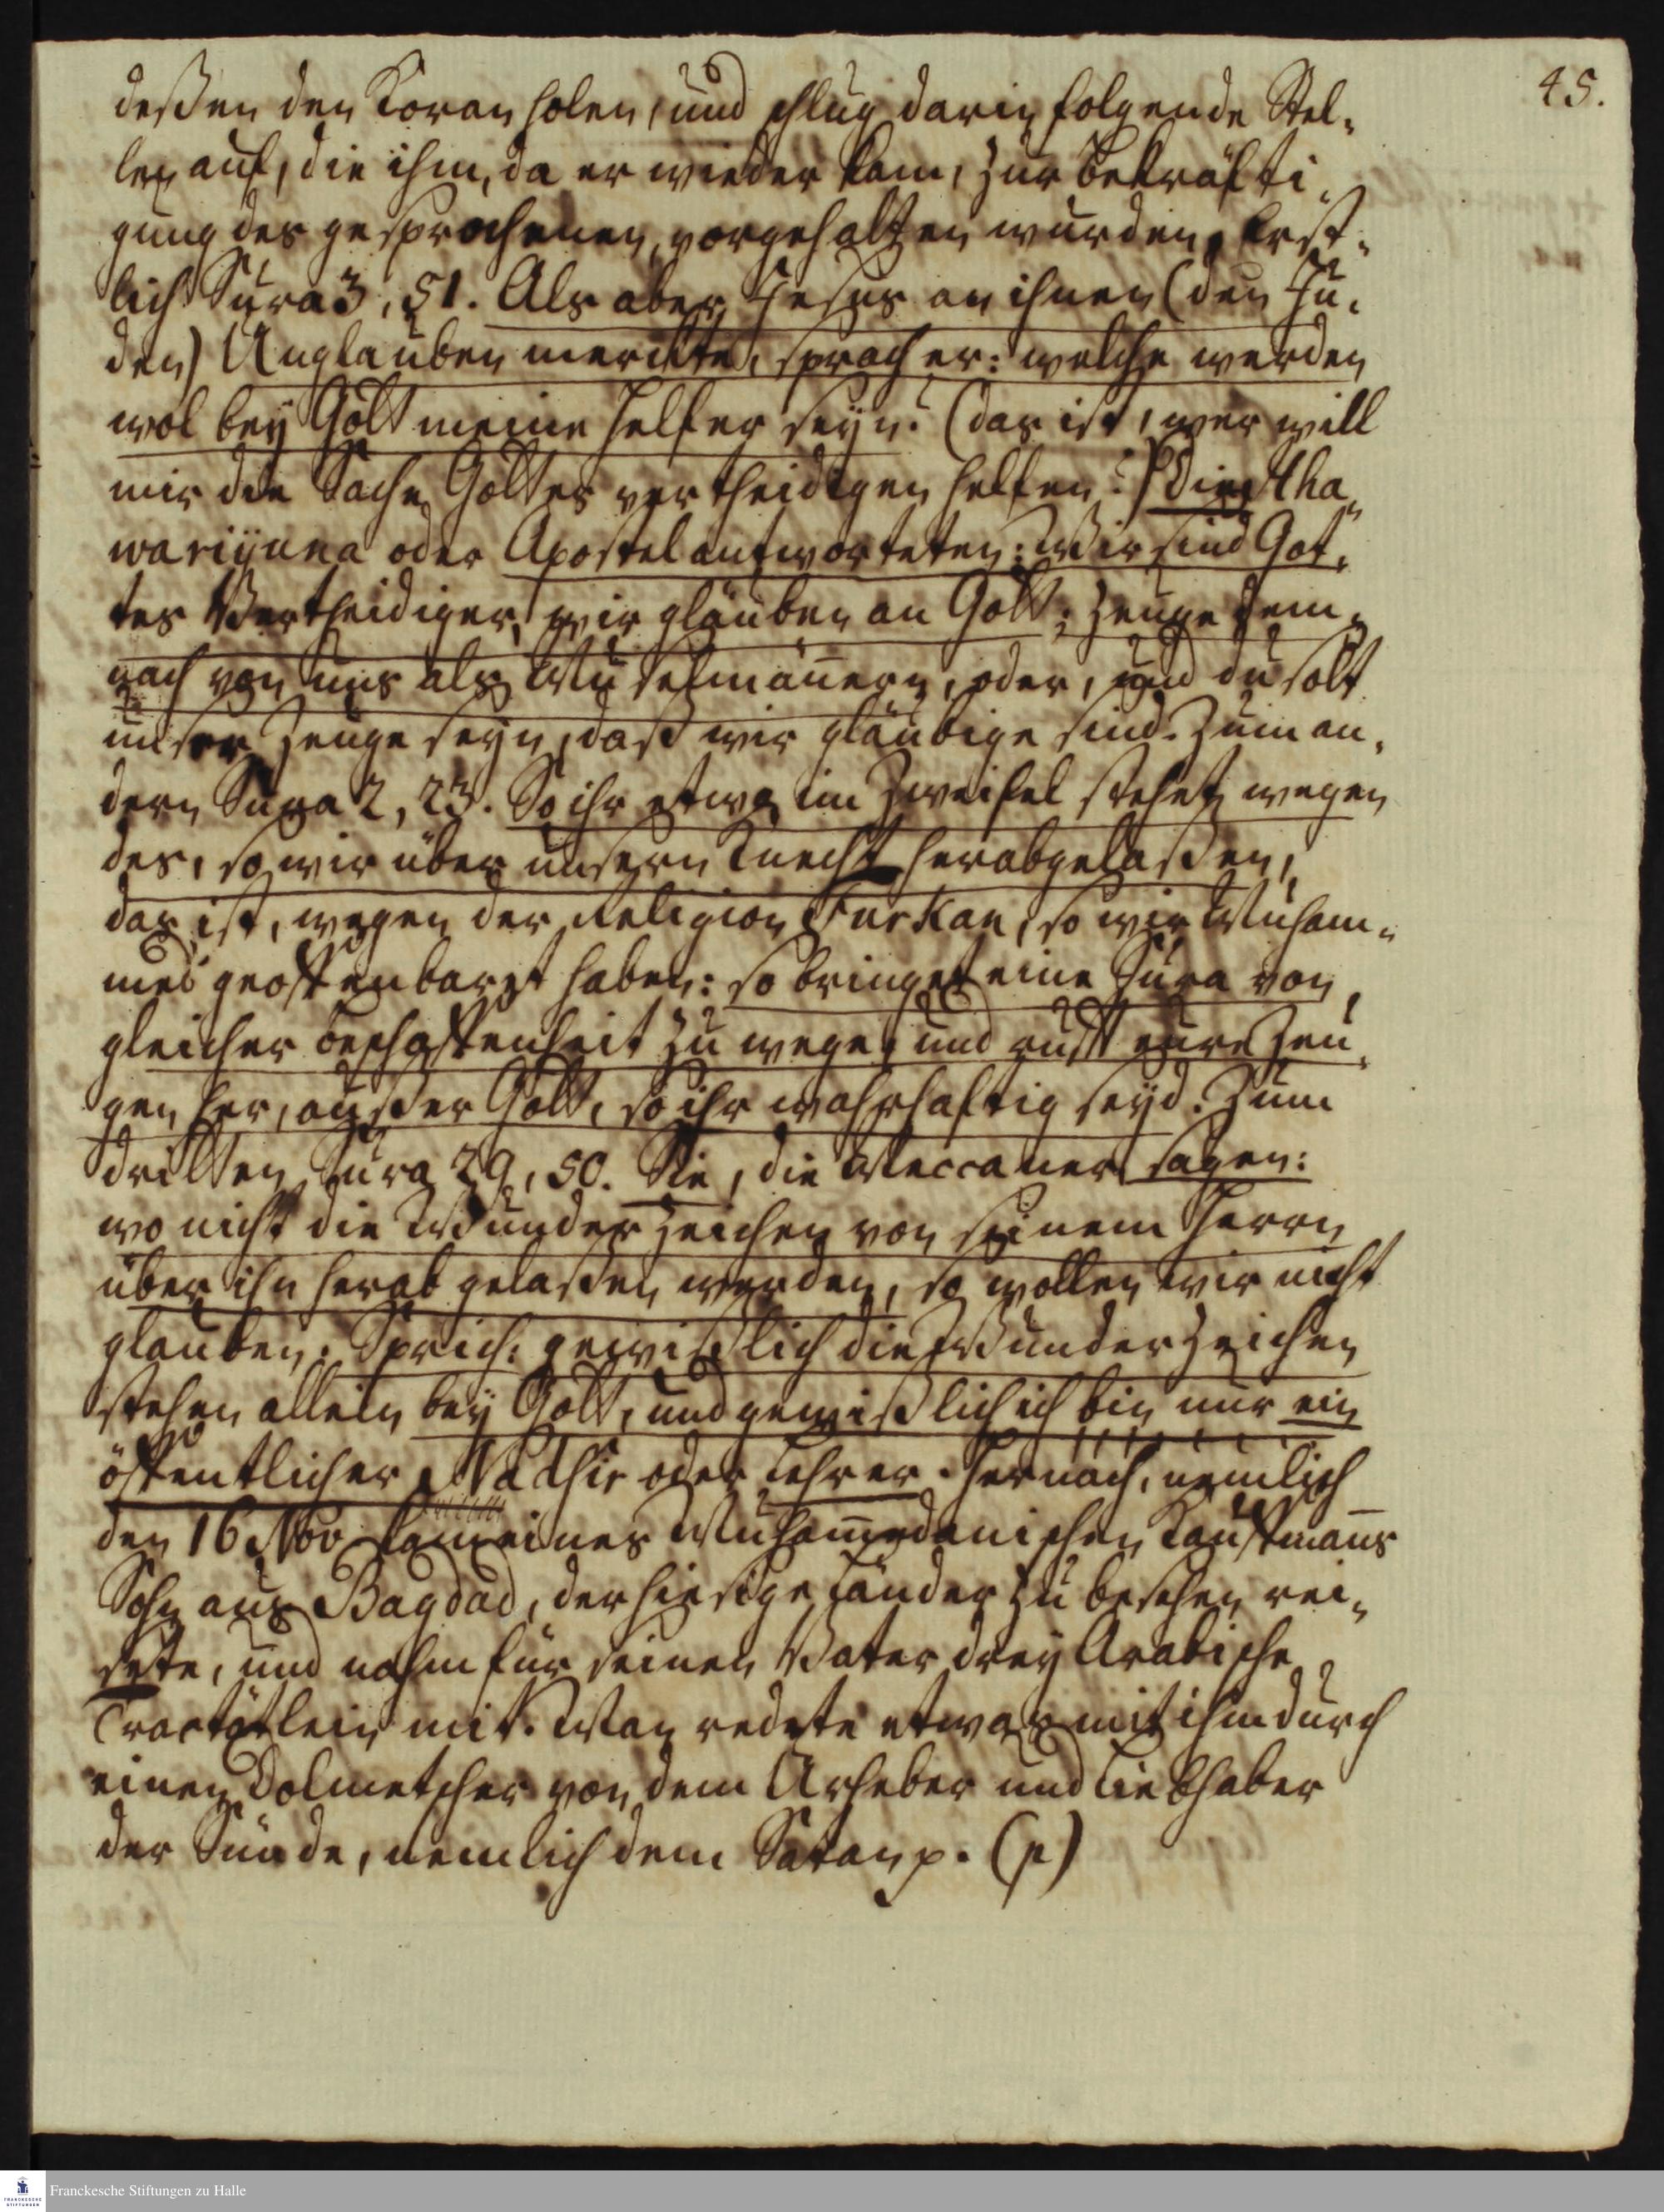 45.
deßen den Koran holen, und schlug darin folgende Stel-
len auf, die ihm, da er wieder kam, zur Bekräfti-
gung des gesprochenen, vorgehalten wurden. Erst-
lich Sura 3, 51. Als aber Jesus an ihnen (den Ju-
den) Unglauben merckte, sprach er: welche werden
wol bey Gott meine Helfer seyn? (das ist, wer will
mir die Sache Gottes vertheidigen helfen?) Die Aha-
wariyuna oder Apostel antworteten: Wir sind Got-
tes Vertheidiger, wir gläuben an Gott; zeuge dem-
nach von uns als Muselmännern, oder, und du solt
unser Zeuge seyn, daß wir gläubige sind. Zum an-
dern Sura 2, 23. So ihr etwa im Zweifel stehet wegen
des, so wir über unsern Knecht herabgelaßen,
das ist, wegen der Religion Furkan, so wir Muham-
med geoffenbaret haben: so bringet eine Sura von
gleicher Beschaffenheit zu wege, und rufft eure Zeu-
gen her, außer Gott, so ihr wahrhaftig seyd. Zum
dritten Sura 29, 50. Sie, die Meccaner sagen:
wo nicht die Wunderzeichen von seinem Herrn
über ihn herab gelaßen werden, so wollen wir nicht
glauben. Sprich: gewißlich die Wunderzeichen
stehen allein bey Gott, und gewißlich ich bin nur ein
öffentlicher Nadhir oder Lehrer. Hernach, nemlich
den 16 Nov. kam eines Muhammedanischen Kauffmanns
Sohn aus Bagdad, der hiesige Länder zu besehen rei-
sete, und nahm für seinen Vater drey Arabische
Tractätlein mit. Man redete etwas mit ihm durch
einen Dolmetscher von dem Urheber und Liebhaber
der Sünde, nemlich dem Satan p. (p)
Franckesche Stiftungen zu Halle
FRANCKESCHE
STIFTUNGEN